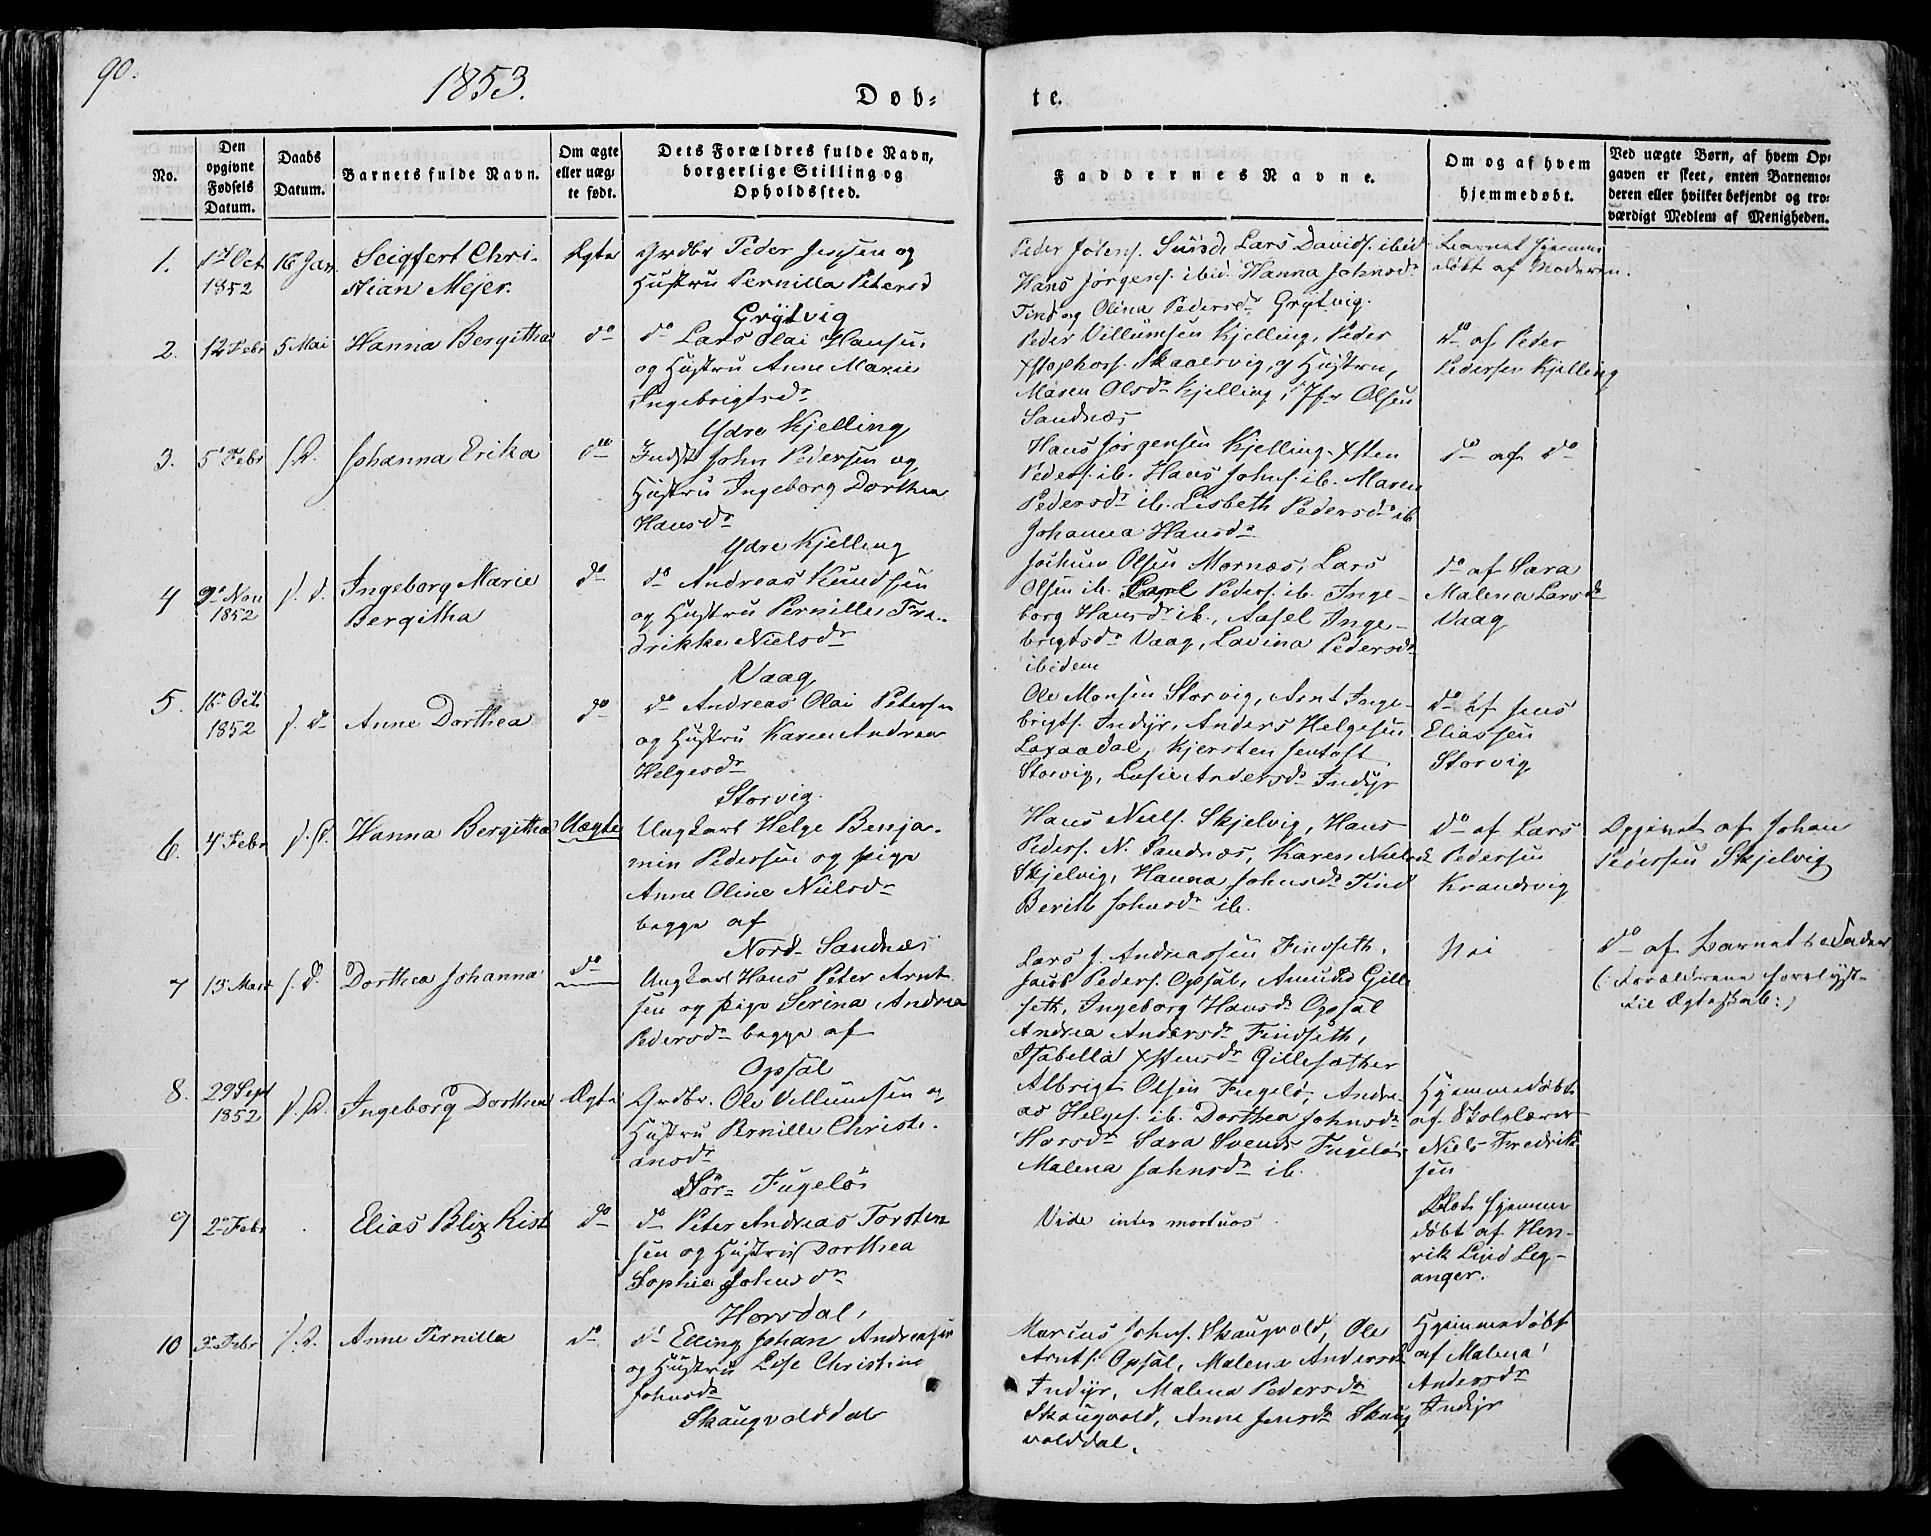 90.
1853.
Døb=
te.
No.
Den opgivne Fødsels Datum.
Daabs Datum.
Barnets fulde Navn.
Om ægte eller uæg= te født.
Dets Forældres fulde Navn, borgerlige Stilling og Opholdssted.
Faddernes Navne.
Om og af hvem hjemmedøbt.
Ved uægte Børn, af hvem Op= gaven er skeet, enten Barnemo= deren eller hvilket bekjendt og tro= værdigt Medlem af Menigheden.
1.
Oct
1852
16 Jan.
Seigfert Chri-
stian Mejer.
Ægte
Grdbr Peder Jensen og
Hustru Pernilla Petersd
Grytvig
Hans Jørgens. ibid. Hanna Johnsdr
Find og Olina Pedersdr Grytvig.
Barnet hjemme
døbt af Moderen.
2.
12 Febr
5 Mai
Hanna Bergitha
do
do Lars Olai Hansen
og Hustru Anne Marie
Ingebrigtsdr
Ydre Kjelling
Peder Villumsen Kjelling, Peder
Skaalsvig og Hustru,
Maren Olsdr Kjelling, Olsen
Sandnæs
do af Peder
Pedersen Kjelling
3.
5 Febr
s. D.
Johanna Erika
do
Indst John Pedersen og
Hustru Ingeborg Dorthea
Hansdr
Ydre Kjelling
Hans Jørgensen Kjelling, Xsten
Peders. ib. Hans Johns. ib. Maren
Pedersdr ib. Lisbeth Pedersdr ib
Johanna Hansdr
do af do
4
9 Nov
1852
s. d.
Ingeborg Marie
Bergitha
do
do Andreas Knudsen
og Hustru Pernille Fre-
drikke Nielsdr
Vaag
Jochum Olsen Mornæs, Lars
Olsen ib. Carl Peders. ib. Inge-
borg Hansdr ib., Aasel Inge-
brigtsdr Vaag, Lavina Pedersdr
ibidem
do af Sara
Malena Larsdr
Vaag
5.
16 Oct.
1852
s. d
Anne Dorthea
do
do Andreas Olai Petersen
og Hustru Karen Andrea
Helgesdr
Storvig.
Ole Monsen Storvig, Arnt Inge-
brigts. Indyr, Anders Helgesen
Laxaadal, Kjersten Jentoft
Storvig, Andersdr Indyr
do af Jens
Eliassen
Storvig
6.
4 Febr
s. D.
Hanna Bergitha
Uægte
Ungkarl Helge Benja-
min Pedersen og Pige
Anne Oline Nielsdr
begge af
Nord-Sandnæs
Hans Niels. Skjelvig, Hans
Peders. N. Sandnæs, Karen Nielsdr
Skjelvig, Hanna Johnsdr Find
Berith Johnsdr ib.
do af Lars
Pedersen
Krandsvig
Opgivet af Johan
Pedersen Skjelvig
7
13 Mart
s. D.
Dorthea Johanna
do
Ungkarl Hans Peter Arnt
sen og Pige Serina Andrea
Pedersdr begge af
Opsal
Lars J. Andreassen Findseth,
Jacob Peders. Opsal, Amund Gille
seth, Ingeborg Hansdr Opsal
Andrea Andersdr Findseth,
Isabella Xstensdr Gillesæther
Nei
do af Barnets Fader
(: Forældrene forelyst
til Ægteskab:)
8.
29 Sept
1852
s. D.
Ingeborg Dorthea
Ægte
Grdbr. Ole Villumsen og
Hustru Pernille Christi-
ansdr
Sør-Fugelø
Albrigt Olsen Fugelø, Andre-
as Helges. ib. Dorthea Johnsdr
Horsdr Sara Svends Fugelø
Malena Johnsdr ib.
Hjemmedøbt
af Skolelærer
Niels Fredrik
sen
9
2 Febr
Elias Blix Rist
do
do Peter Andreas Torsten
sen og Hustru Dorthea
Sophia Johnsdr
Horsdal,
Vide inter mortuos
Blot hjemme
døbt af Hen-
rik Lind Leg-
anger.
10
3 Febr
s. D.
Anne Pernilla
do.
do Elling Johan Andreasen
og Hustru Lise Christine
Johnsdr
Skaugvolddal
Marius Johns. Skaugvold, Ole
Arnts. Opsal, Malena Andersdr
Indyr, Malena Pedersdr
Skaugvold, Anne Jensdr Skaug
volddal,
Hjemmedøbt
af Malena
Andersdr
Indyr